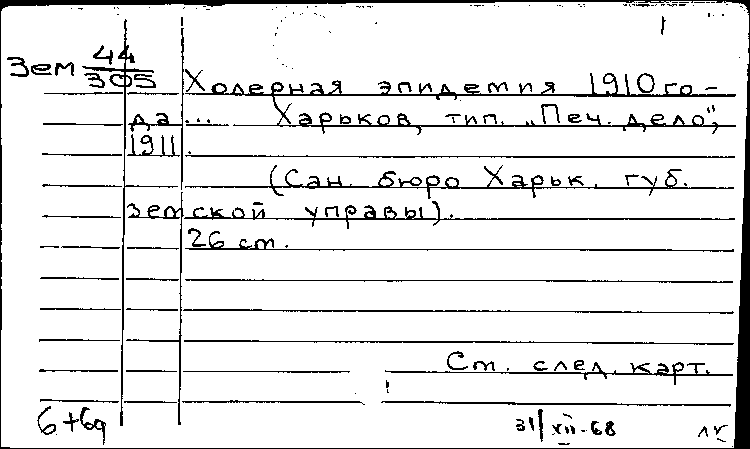 1
Зем 44/305
Холерная эпидемия 1910 го-
да... Харьков, тип. „Печ. дело",
1911.
(Сан. бюро Харьк. губ.
земской управы).
26 ст.
Ст. след. карт.
6+6q
31/XII-68